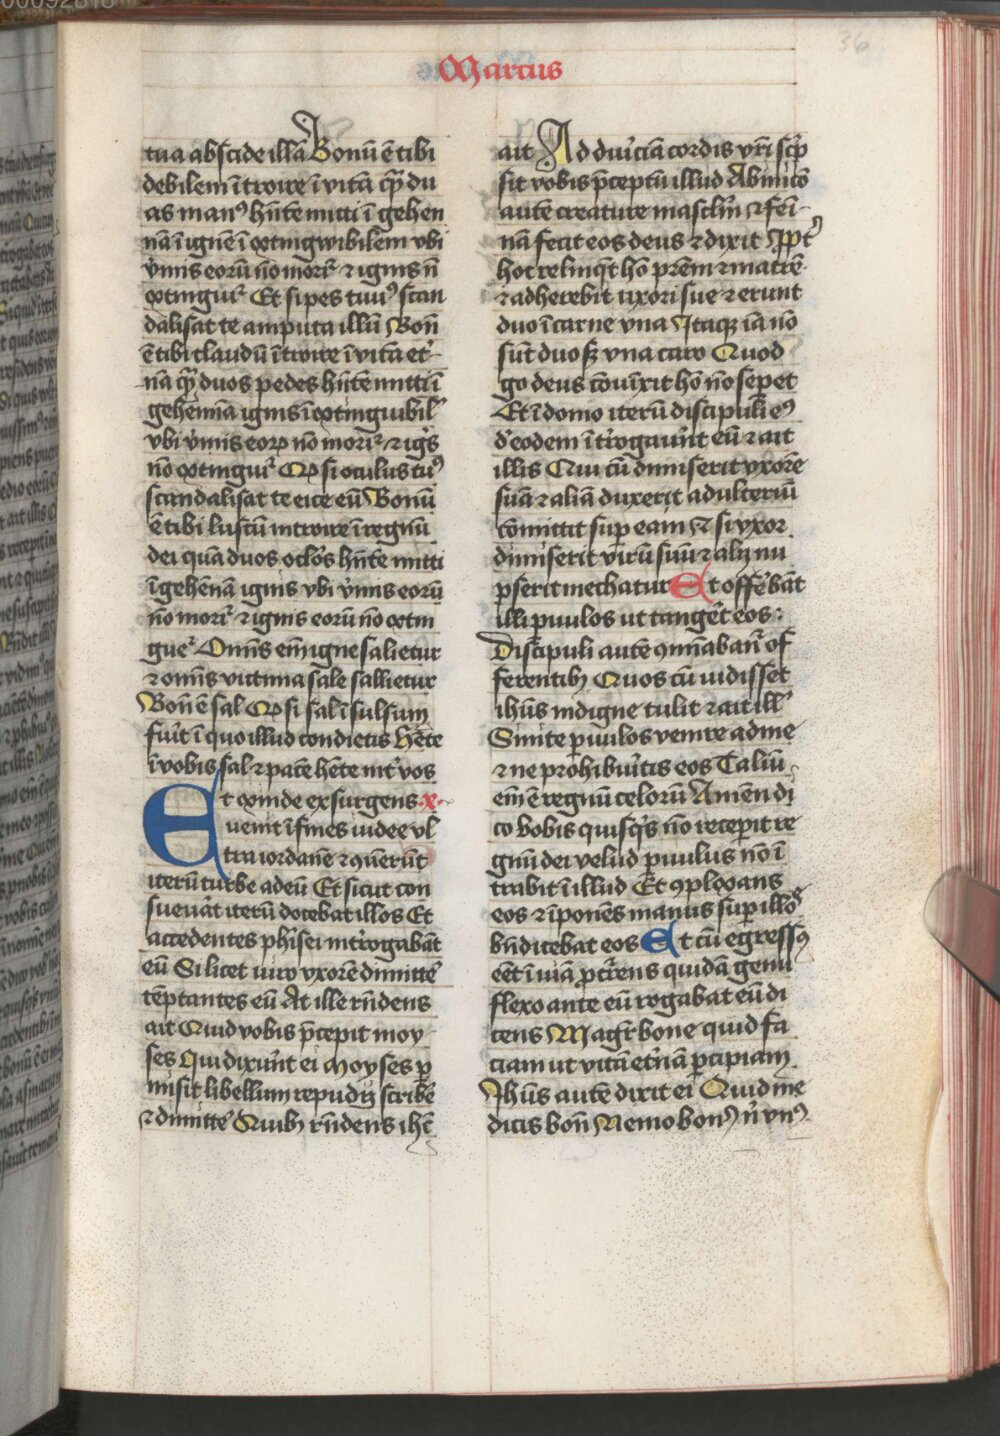 00092818
36
Marcus
tua abscide illā Bonū ē tibi
debilem ītroire ī vitā q̄ȝ du
as man⁹ hn̄te mitti ī gehen
nā ī ignē ī extingwibilem vbi
v̓mis eorū nō morit᷑ ⁊ ignis n̄
extinguit᷑ Et si pes tuus⁹ scan
dalisat te amputa illū Bon̄
ē tibi claudū ītroire ī vitā et᷑
nā q̄ȝ duos pedes hn̄te mitti ī
gehennā ignis ī extinguibil᷑
vbi v̓mis eoꝝ nō morit᷑ ⁊ ig̓s
nō extinguit᷑ Qḏ si oculus tu⁹
scandalisat te eice eū Bonū
ē tibi luscū introire ī regnū
dei quā duos oc̄los hn̄te mitti
ī gehēnā ignis vbi v̓mis eorū
nō morit᷑ ⁊ ignis eorū nō extin
guet᷑ Omn̄s em̄ igne salietur
⁊ omn̄s victima sale sallietur
Bon̄ ē sal Qḏ si sal īsulsum
fu̓it ī quo illud condietis Hēte
ī vobis sal ⁊ pacē hēte int᷑ vos
Et exinde exsurgens .x.
venit ī fines iudee vl
tra iordanē ⁊ ꝯuen̄ūt
iterū turbe ad eū Et sicut con
sueu̓at iterū docebat illos Et
accedentes ph̓isei int̓rogabāt
eū Si licet uiro vxorē dimitte᷑
tēptantes eū At ille rn̄dens
ait Quid vobis p̄cepit moy
ses Qui dixūnt ei Moyses ꝑ
misit libellum repudij scribe᷑
⁊ dimitte᷑ Quibꝫ rn̄dens ihē
ait Ad duric̓iā cordis vr̄i sc̓p
sit vobis p̄ceptū illud Ab inicō
autē creature mascl̄m ⁊ femī
nā fecit eos deus ⁊ dixit ꝓpt᷑
hoc relinq̄t hō pr̄em ⁊ matrē
⁊ adherebit uxori sue ⁊ erunt
duo ī carne vna Itaqꝫ iā nō
sūt duo sꝫ vna caro Quod
go deus cōuīxit hō nō sepet
Et ī domo iterū discipuli ei⁹
d̓ eodem ī t̓rogau̓nt eū ⁊ ait
illis Qui cū dimiserit vxorē
suā ⁊ aliā duxerit adulteriū
cōmittit sup̱ eam ⁊ si yxor
dimiserit virū suū ⁊ alij nu
pserit mechatur Et offe᷑bāt
illi ꝑuulos ut tangēt eos :
Discipuli autē ꝯmīabant᷑ of
ferentibꝫ Quos cū uidisset
ihūs indigne tulit ⁊ ait ill᷑
Sinite ꝑuulos venire ad me
⁊ ne prohibu̓itis eos Taliū
em̄ ē regnū celorū Amen di
co vobis quisq̓s nō recepit re
gnū dei velud ꝑuulus nō ī
trabit ī illud Et ꝯplexans
eos ⁊ īponēs manus sup̱ illos
bn̄dicebat eos Et cū egress⁹
eēt ī uiā ꝓc̓rens quidā genu
flexo ante eū rogabat eū di
cens Magr̄ bone quid fa
ciam ut vitā et̓nā ꝑcipiam
Ihūs autē dixit ei Quid me
dicis bon̄ Nemo bon⁹ n̓ vn⁹